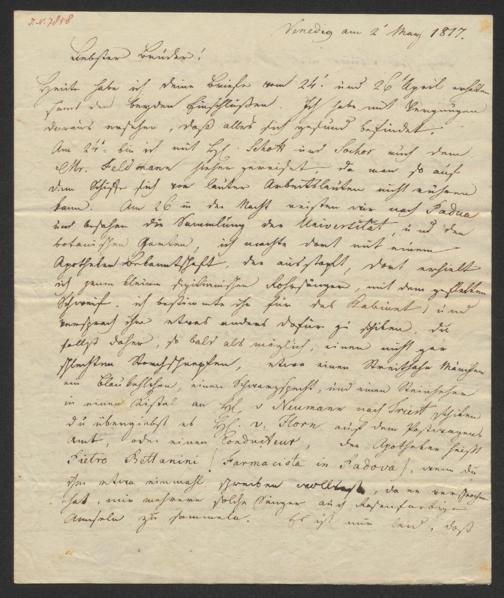 N.N. 7818
Venedig am 2t May 1817.
Liebster Bruder!
Heute habe ich deine Briefe vom 24t und 26 April erhalten
samt den beyden Einschlüssen. Ich habe mit Vergnügen
daraus ersehen, daß alles sich gesund befindet.
Am 24t bin ich mit H. Schott und Sochor nach dem
Mr. Feldmann hieher gereiset, da man so auf
dem Schiffe sich vor lauter Arbeitsleuten nicht rühren
kann. Am 26 in der Nacht reisten wir nach Padua
und besahen die Sammlung der Universität, und den
botanischen Garten, ich machte dort mit einem
Apotheker Bekanntschaft, der ausstopft, dort erhielt
ich einen kleinen Rohrsänger, mit dem
Schweif. ich bestimmte ihn für das Kabinet, und
versprach ihm etwas anders dafür zu schicken. du
sollst daher, so bald als möglich, einen nicht gar
schlechten, etwa einen
ein Blaukehlchen, einen Schwarzspecht, und einen
in einem Kistel an H. v Neumann nach Triest schicken
du übergiebst es H. v. Florn auf dem Postwagens
Amt, oder einen Conducteur. Der Apotheker heißt
Pietro Bettanini (Farmacista in Padova), wenn du
ihm etwa einmahl schreiben wolltest, da er versprochen
hat, mir mehrere solche Sänger auch Rosenfarbige
Amseln zu sammeln. Es ist mir leid, daß